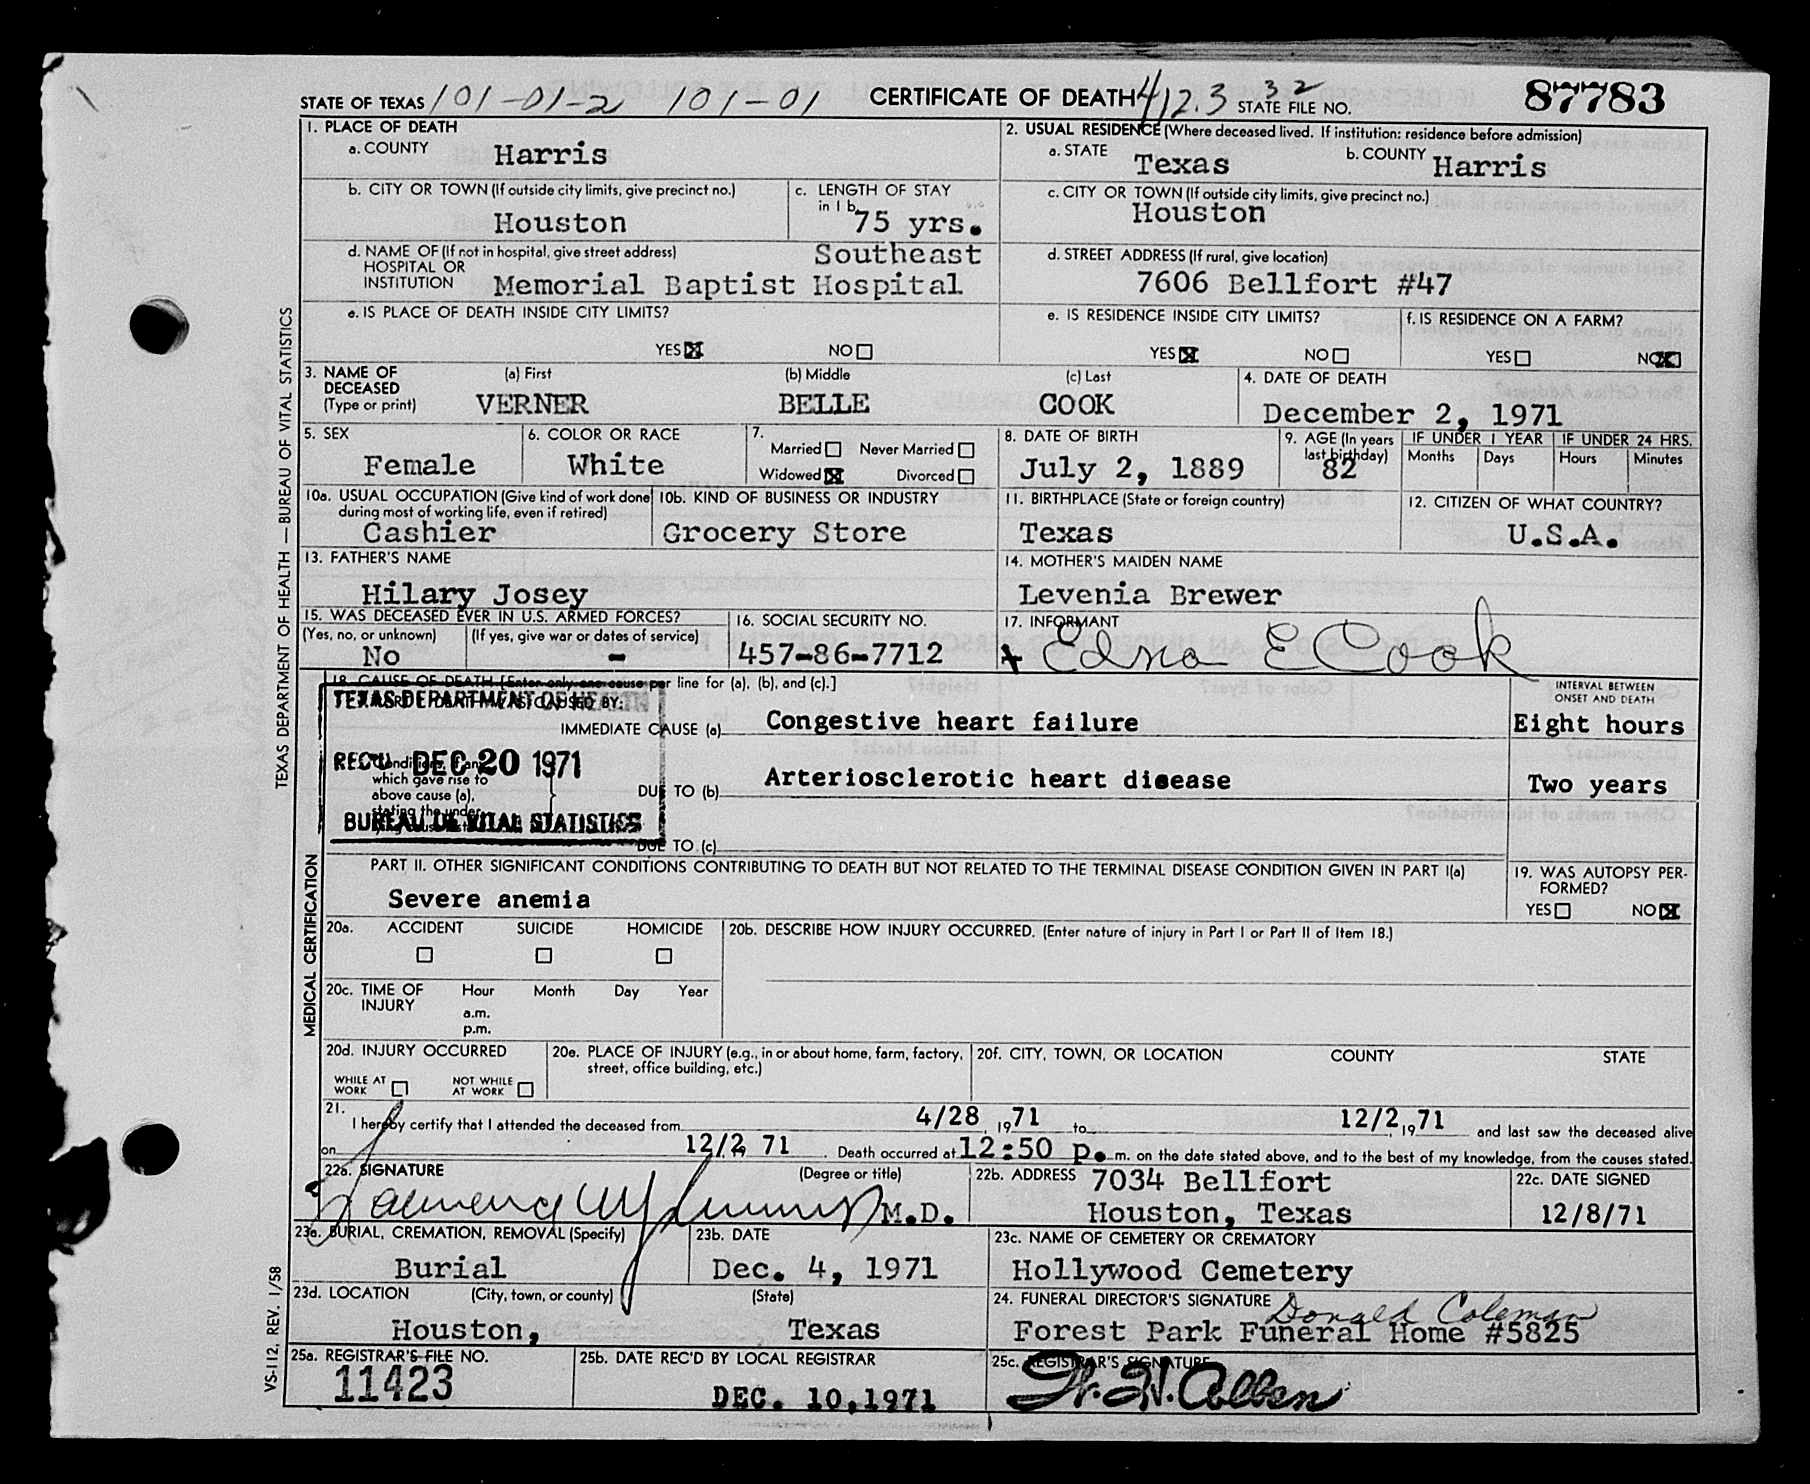 STATE OF TEXAS 101-01-2 101-01 CERTIFICATE OF DEATH 412.3 32 STATE FILE NO. 87783
1. PLACE OF DEATH
a. COUNTY Harris
2. USUAL RESIDENCE (Where deceased lived. If institution: residence before admission)
a. STATE Texas b. COUNTY Harris
b. CITY OR TOWN (If outside city limits, give precinct no.)
Houston
c. LENGTH OF STAY
in 1 b.
75 yrs.
c. CITY OR TOWN (If outside city limits, give precinct no.)
Houston
d. NAME OF (If not in hospital, give street address)
HOSPITAL OR
INSTITUTION
Southeast
Memorial Baptist Hospital
d. STREET ADDRESS (If rural, give location)
7606 Bellfort #47
e. IS PLACE OF DEATH INSIDE CITY LIMITS?
YES NO
e. IS RESIDENCE INSIDE CITY LIMITS?
YES NO
f. IS RESIDENCE ON A FARM?
YES NO
3. NAME OF
DECEASED
(Type or print)
(a) First (b) Middle (c) Last
VERNER BELLE COOK
4. DATE OF DEATH
December 2, 1971
5. SEX
Female
6. COLOR OR RACE
White
7.
Married Never Married
Widowed Divorced
8. DATE OF BIRTH
July 2, 1889
9. AGE (In years
last birthday)
82
IF UNDER 1 YEAR IF UNDER 24 HRS.
Months Days Hours Minutes
10a. USUAL OCCUPATION (Give kind of work done
during most of working life, even if retired)
Cashier
10b. KIND OF BUSINESS OR INDUSTRY
Grocery Store
11. BIRTHPLACE (State or foreign country)
Texas
12. CITIZEN OF WHAT COUNTRY?
U.S.A.
13. FATHER'S NAME
Hilary Josey
14. MOTHER'S MAIDEN NAME
Levenia Brewer
15. WAS DECEASED EVER IN U.S. ARMED FORCES?
(Yes, no, or unknown) (If yes, give war or dates of service)
No -
16. SOCIAL SECURITY NO.
457-86-7712
17. INFORMANT
x Edna E Cook
18. CAUSE OF DEATH [Enter only one cause per line for (a), (b), and (c).]
TEXAS DEPARTMENT OF HEALTH
REC'D DEC 20 1971
BUREAU OF VITAL STATISTICS
IMMEDIATE CAUSE (a) Congestive heart failure
Conditions, if any
which gave rise to
above cause (a),
stating the under-
DUE TO (b) Arteriosclerotic heart disease
DUE TO (c)
INTERVAL BETWEEN
ONSET AND DEATH
Eight hours
Two years
PART II. OTHER SIGNIFICANT CONDITIONS CONTRIBUTING TO DEATH BUT NOT RELATED TO THE TERMINAL DISEASE CONDITION GIVEN IN PART I(a)
Severe anemia
19. WAS AUTOPSY PER-
FORMED?
YES NO
20a. ACCIDENT SUICIDE HOMICIDE
20b. DESCRIBE HOW INJURY OCCURRED. (Enter nature of injury in Part I or Part II of Item 18.)
20c. TIME OF
INJURY
Hour Month Day Year
a.m.
p.m.
20d. INJURY OCCURRED
WHILE AT
WORK
NOT WHILE
AT WORK
20e. PLACE OF INJURY (e.g., in or about home, farm, factory,
street, office building, etc.)
20f. CITY, TOWN, OR LOCATION COUNTY STATE
21.
I hereby certify that I attended the deceased from 4/28, 1971 to 12/2, 1971 and last saw the deceased alive
on 12/2, 71. Death occurred at 12:50 p.m. on the date stated above, and to the best of my knowledge, from the causes stated.
22a. SIGNATURE (Degree or title)
M.D.
22b. ADDRESS 7034 Bellfort
Houston, Texas
22c. DATE SIGNED
12/8/71
23a. BURIAL, CREMATION, REMOVAL (Specify)
Burial
23b. DATE
Dec. 4, 1971
23c. NAME OF CEMETERY OR CREMATORY
Hollywood Cemetery
23d. LOCATION (City, town, or county) (State)
Houston, Texas
24. FUNERAL DIRECTOR'S SIGNATURE Donald Coleman
Forest Park Funeral Home #5825
25a. REGISTRAR'S FILE NO.
11423
25b. DATE REC'D BY LOCAL REGISTRAR
DEC. 10, 1971
25c. REGISTRAR'S SIGNATURE
TEXAS DEPARTMENT OF HEALTH — BUREAU OF VITAL STATISTICS
MEDICAL CERTIFICATION
VS-112, REV. 1/58